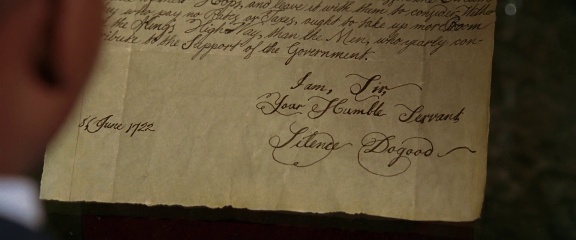 Hoops, and leave it with them to consider, Whether
who pay no Rates or Taxes, ought to take up more Room
the King's High-Way, than the Men, who yearly con-
tribute to the Support of the Government.
I am, Sir,
Your Humble Servant
June 1722
Silence Dogood